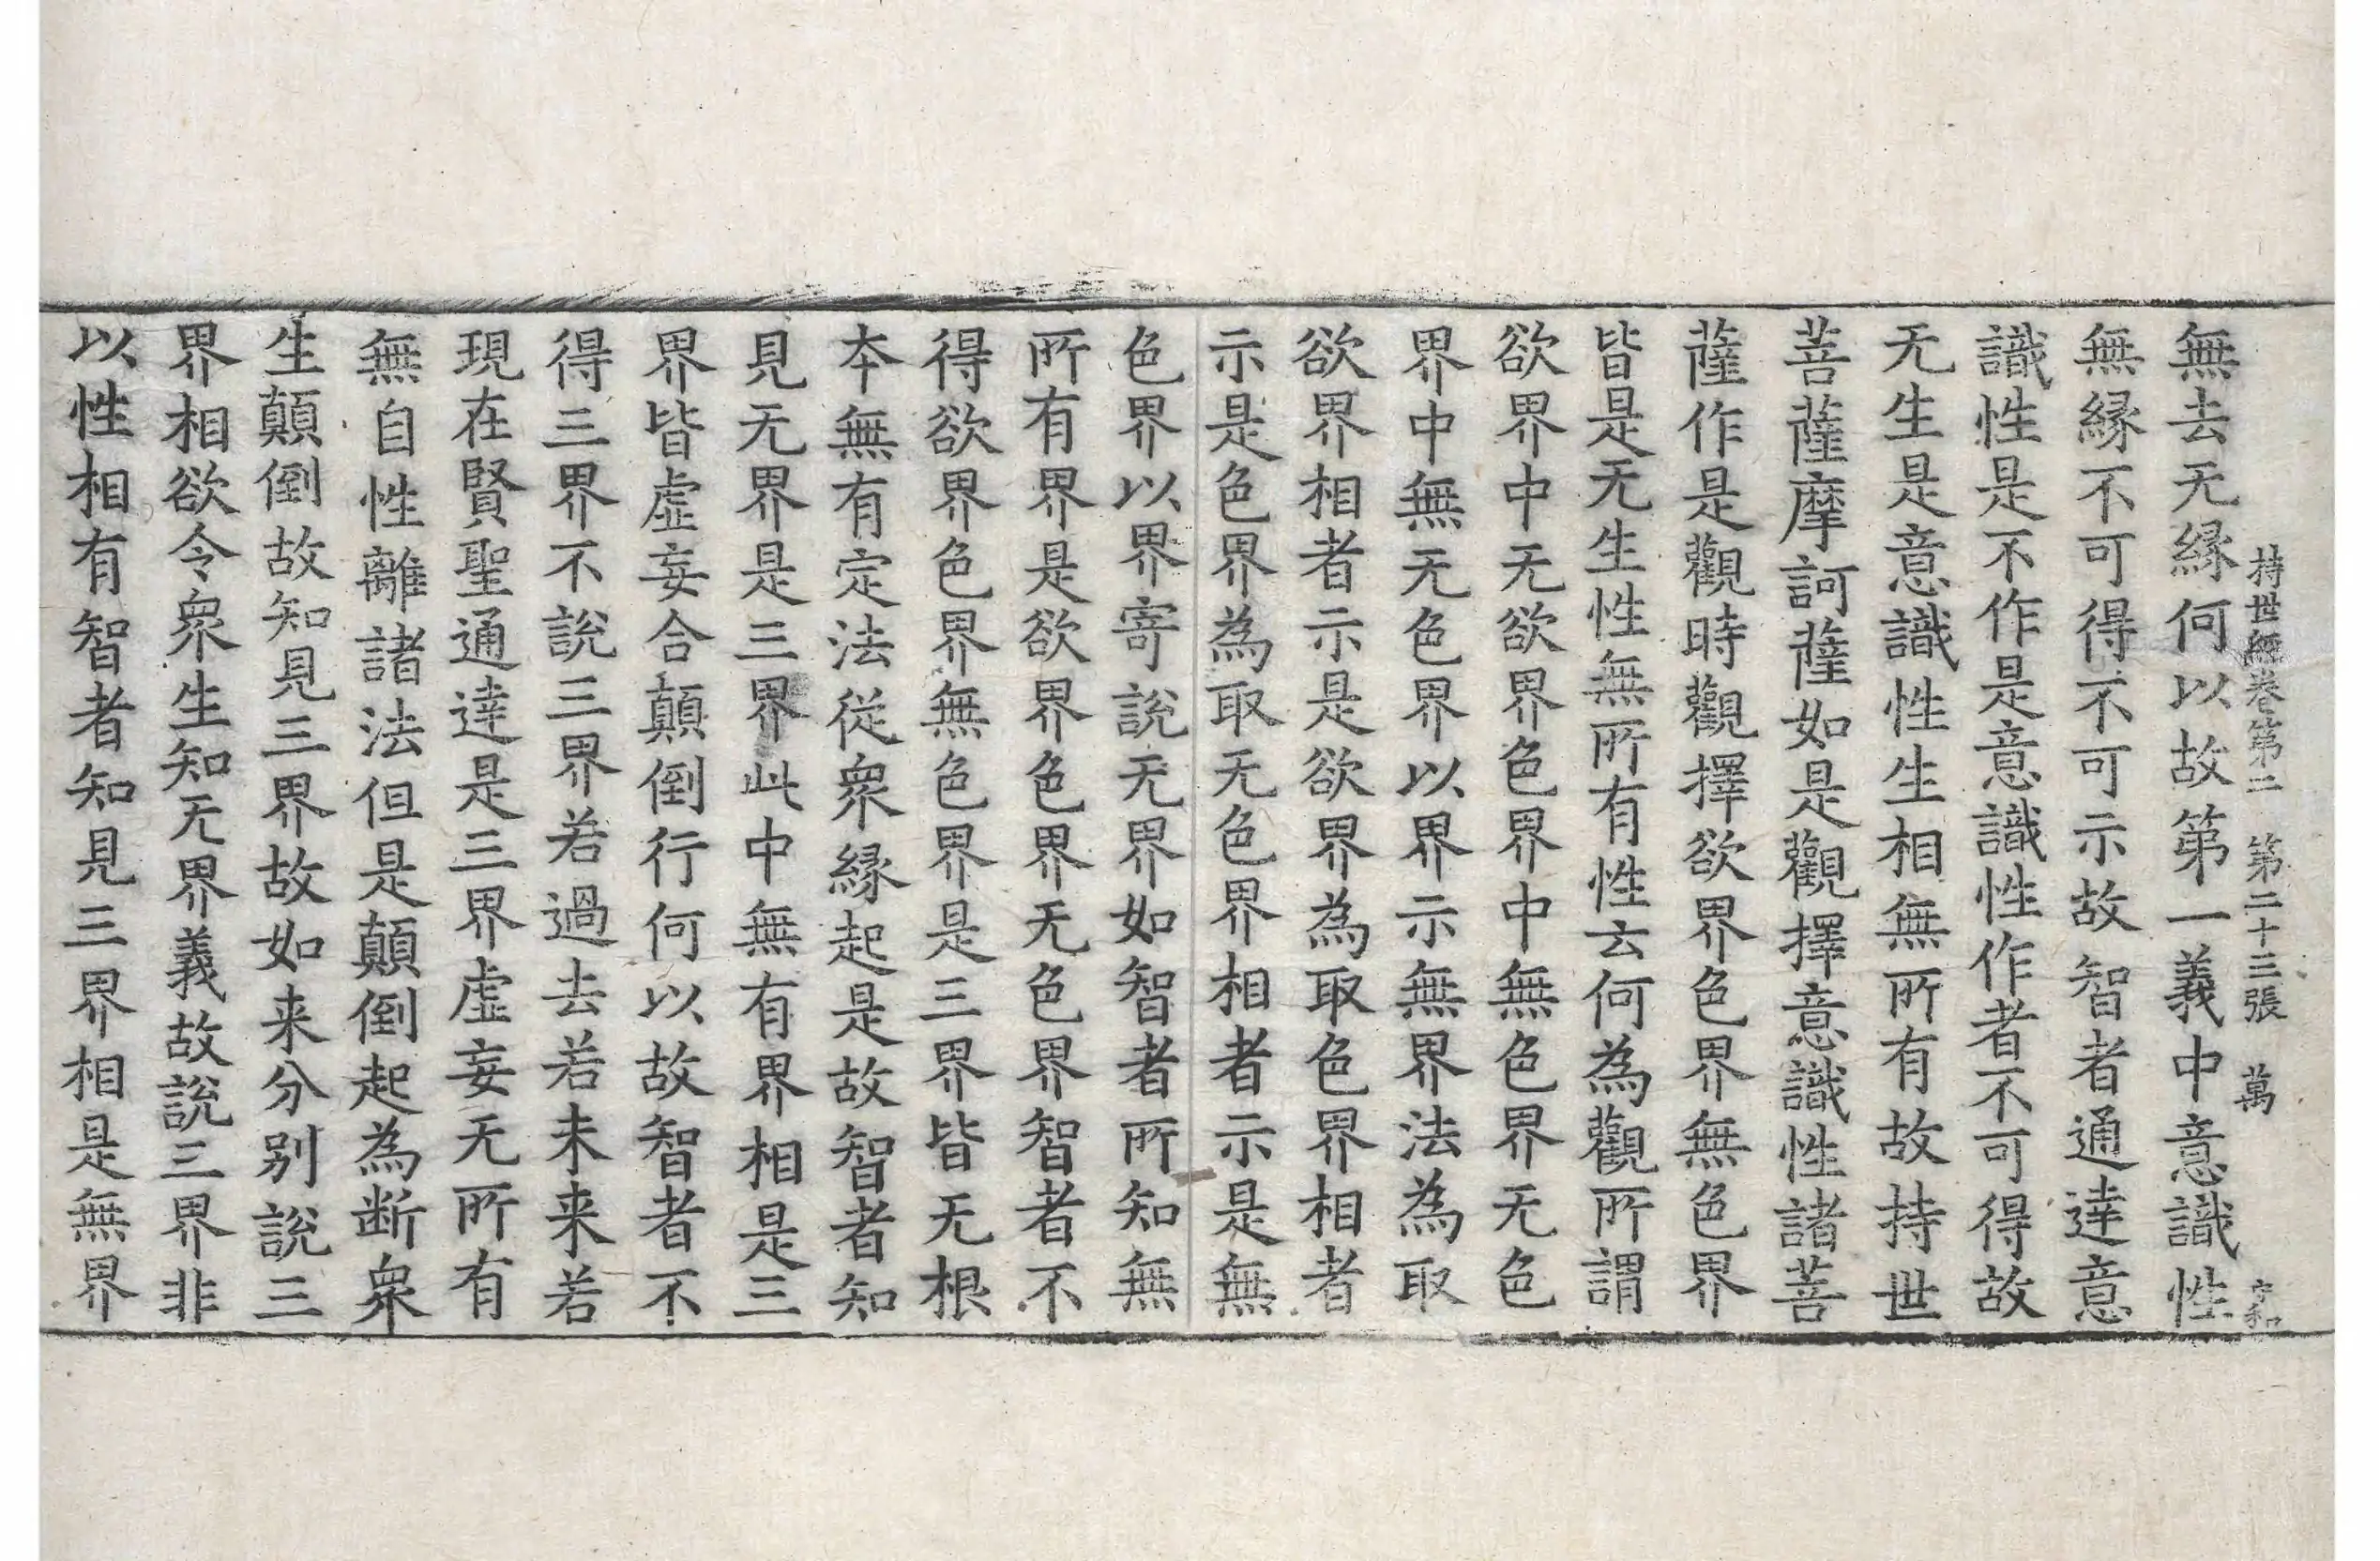 持世經卷第二 第二十三張 萬 文和
無去无緣何以故第一義中意識性
無緣不可得不可示故智者通達意
識性是不作是意識性作者不可得故
无生是意識性生相無所有故持世
菩薩摩訶薩如是觀擇意識性諸菩
薩作是觀時觀擇欲界色界無色界
皆是无生性無所有性云何為觀所謂
欲界中无欲界色界中無色界无色
界中無无色界以界示無界法為取
欲界相者示是欲界為取色界相者
示是色界為取无色界相者示是無
色界以界寄說无界如智者所知無
所有界是欲界色界无色界智者不
得欲界色界無色界是三界皆无根
本無有定法從衆緣起是故智者知
見无界是三界此中無有界相是三
界皆虛妄合顛倒行何以故智者不
得三界不說三界若過去若未来若
現在賢聖通達是三界虛妄无所有
無自性離諸法但是顛倒起為断衆
生顛倒故知見三界故如来分別說三
界相欲令衆生知无界義故說三界非
以性相有智者知見三界相是無界